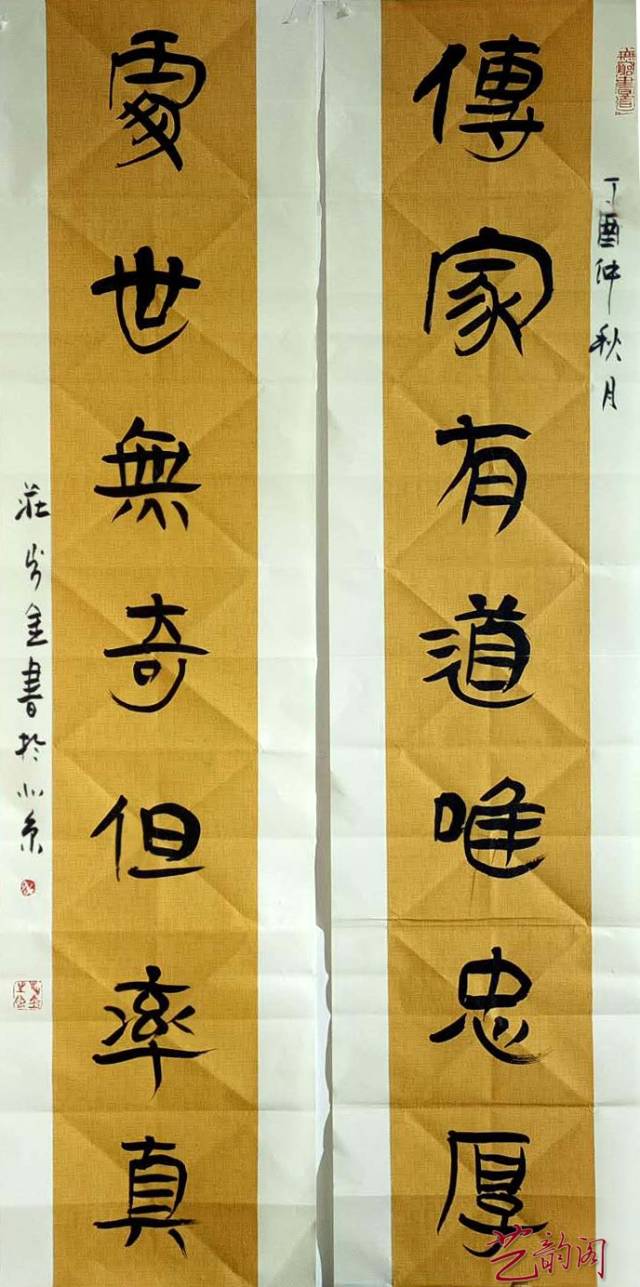 傳家有道唯忠厚
處世無奇但率真
丁酉仲秋月
莊 金書於北京
艺韵阁